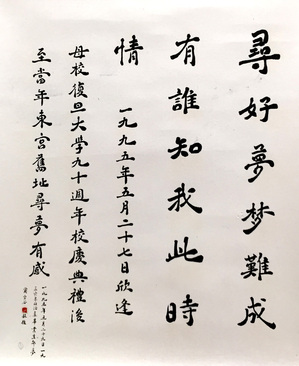 尋好夢梦難成
有誰知我此時
情
一九九五年五月二十七日欣逢
母校復旦大學九十週年校慶典禮後
至當年東宮舊址尋夢有感